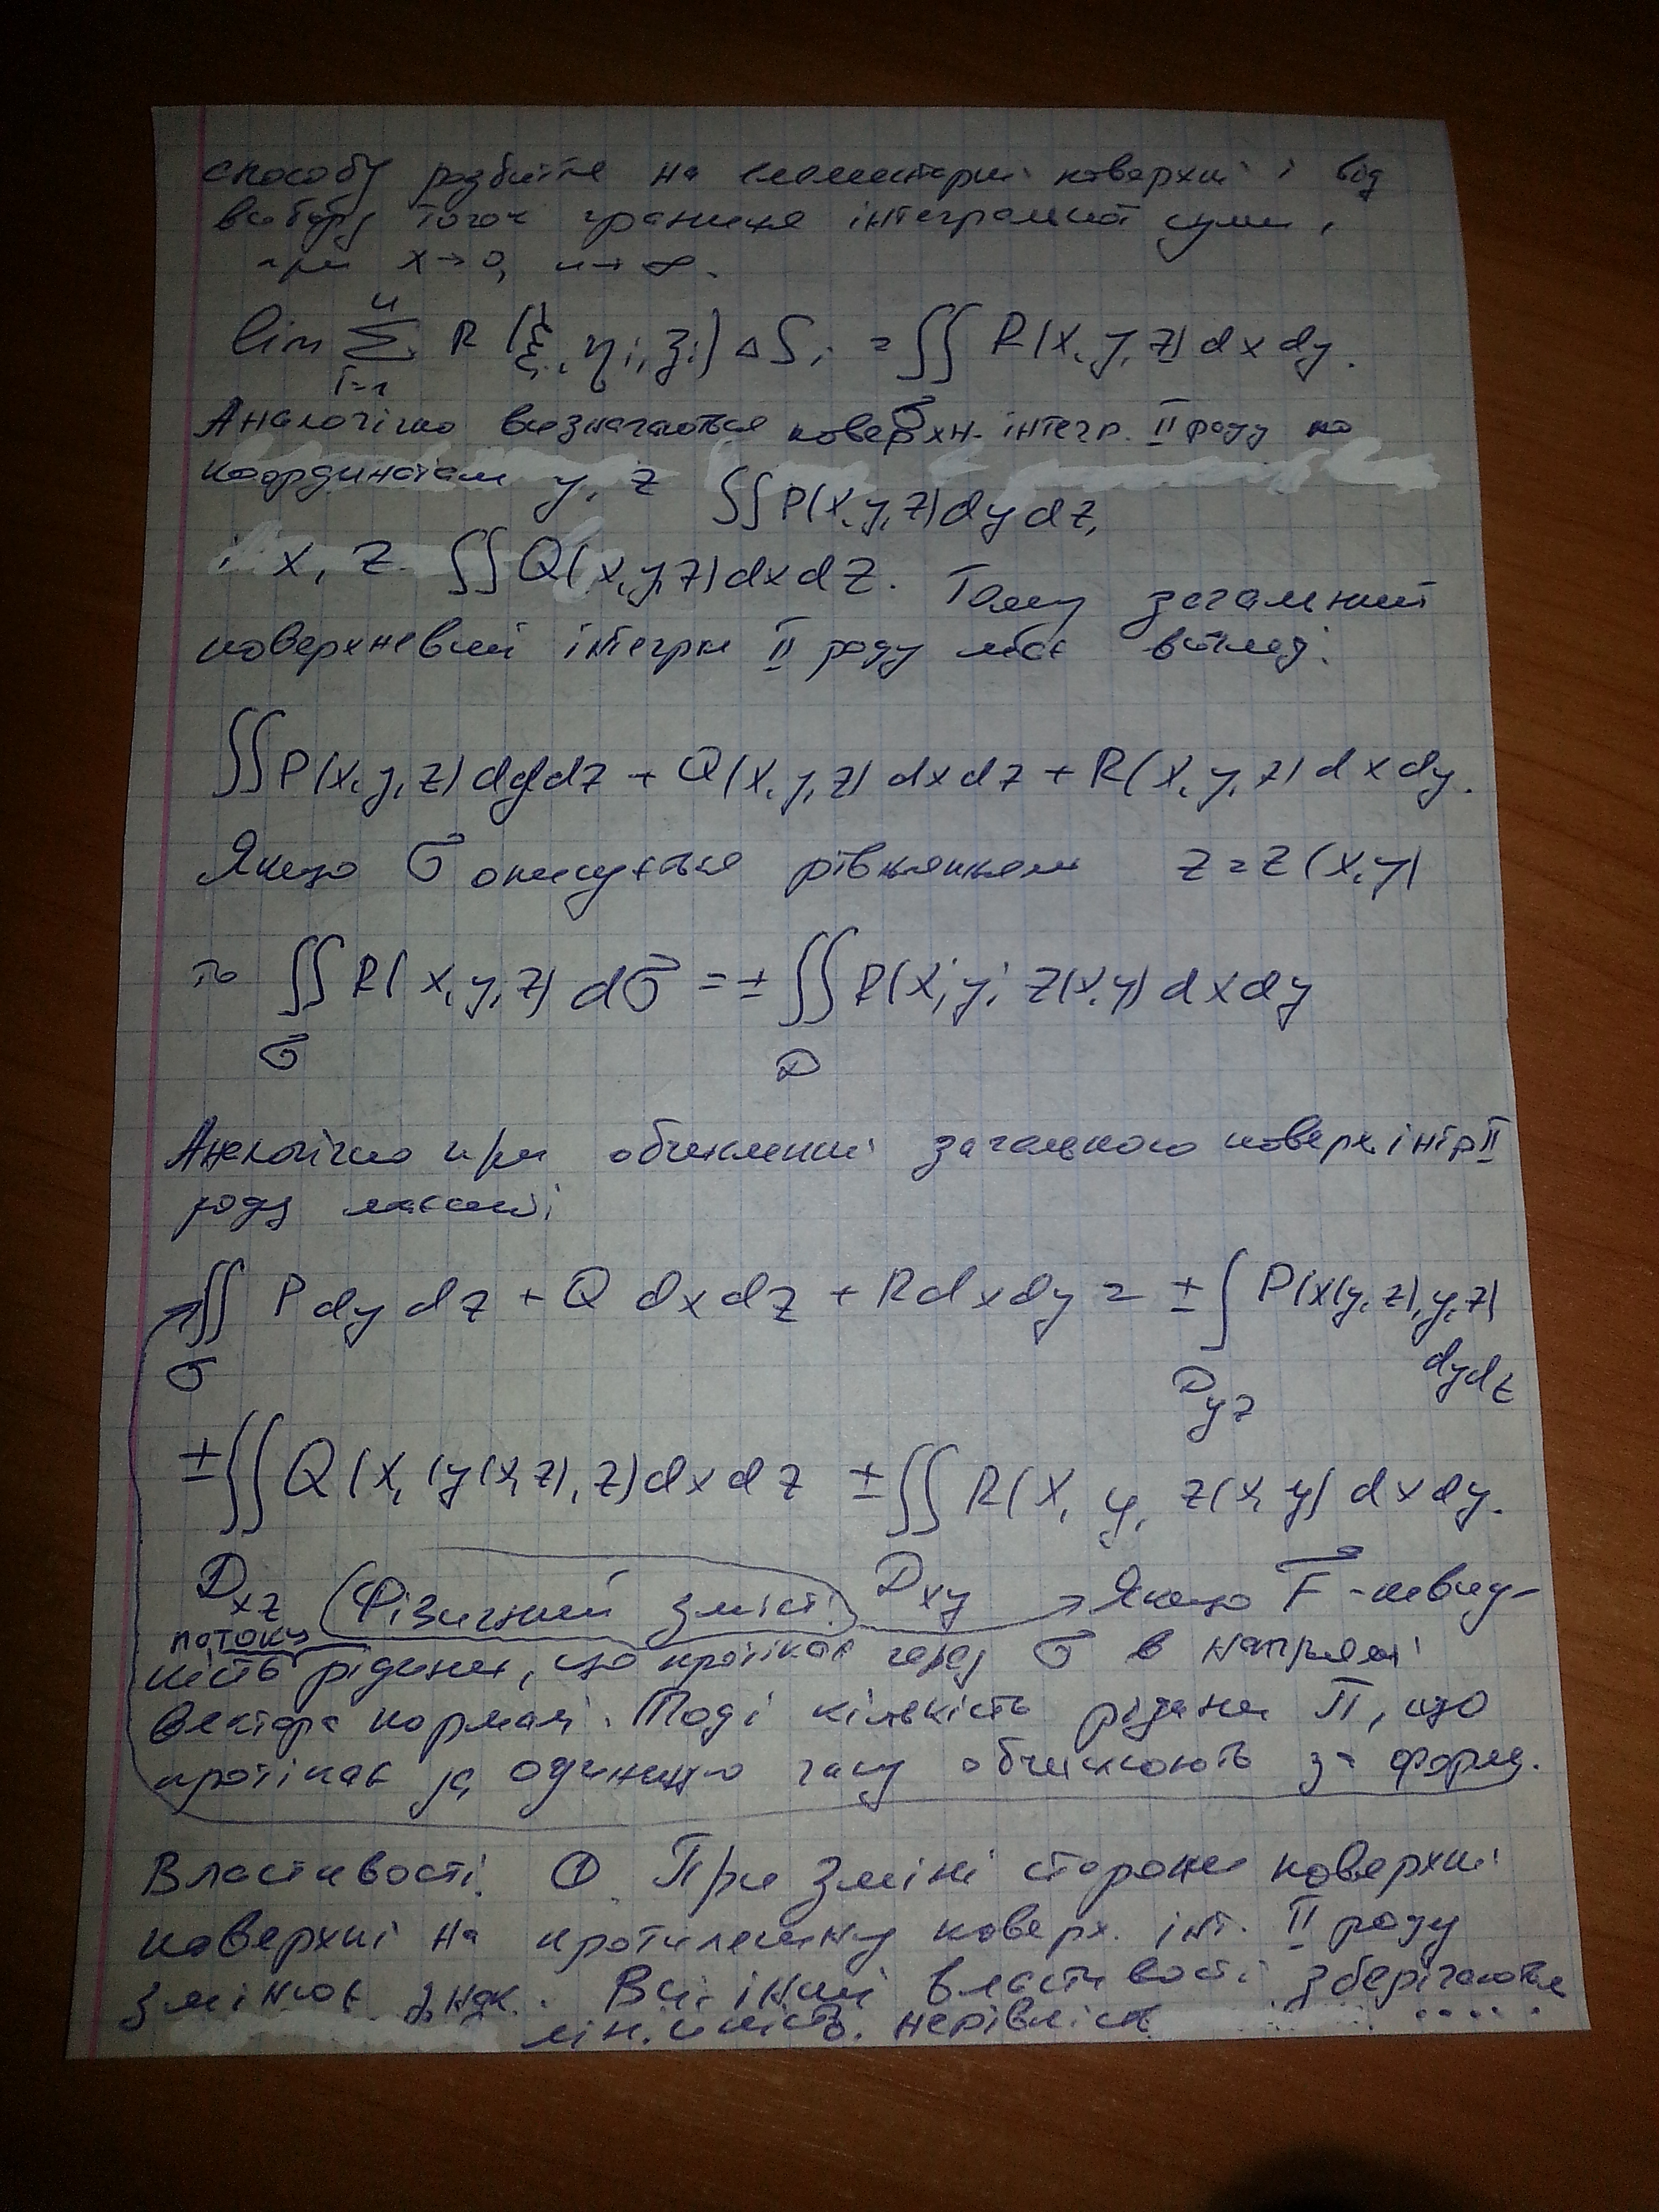 способу розбиття на елементарні поверхні і від
вибору точок границя інтегральної суми,
при x→0, n→∞.
lim ∑ᵢ₌₁ⁿ R(ξᵢ, ηᵢ, ʒᵢ) ΔSᵢ = ∬_σ R(x, y, z) dx dy.
Аналогічно визначаються поверхн. інтегр. II роду по
координатам y, z ∬P(x, y, z) dy dz,
і x, z. ∬Q(x, y, z) dx dz. Тому загальний
поверхневий інтегрл II роду має вигляд:
∬P(x, y, z) dy dz + Q(x, y, z) dx dz + R(x, y, z) dx dy.
Якщо σ описується рівнянням z = z(x, y)
то ∬_σ R(x, y, z) dσ = ± ∬_D R(x; y; z(x, y) dx dy
Аналогічно при обчисленні загального поверх. інтр II
роду маємо:
∬_σ P dy dz + Q dx dz + R dx dy = ± ∫_Dyz P(x(y, z), y, z) dy dz
± ∬_Dxz Q(x, (y(x, z), z) dx dz ± ∬_Dxy R(x, y, z(x, y) dx dy.
Фізичний зміст: Якщо F⃗ - швид-
кість потоку рідини, що протікає через σ в напрямі
вектора нормалі. Тоді кількість рідини П, що
протікає за одиницю часу обчислюють за форму.
Властивості. ① При зміні сторони поверхні
поверхні на протилежну поверх. інт. II роду
змінює знак. Всі інші властивості зберігаються
лін. нерівність .....